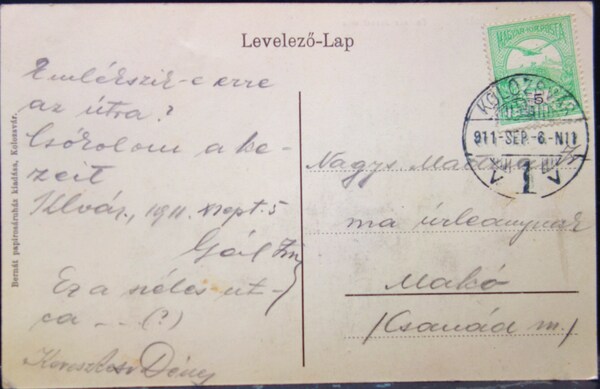 Levelező-Lap
MAGYAR KIR. POSTA
5
KOLOZSVÁR
911-SEP.-6.-N11
1
V V
Bernát papirosáruház kiadása, Kolozsvár.
Emlékszik-e erre
az útra?
Csókolom a ke-
zeit
Klvár, 1911. szept. 5
Gál
Ez a széles ut-
ca ... (?)
Dény
Nagys.
ma úrleánynak
Makó
(Csanád m.)